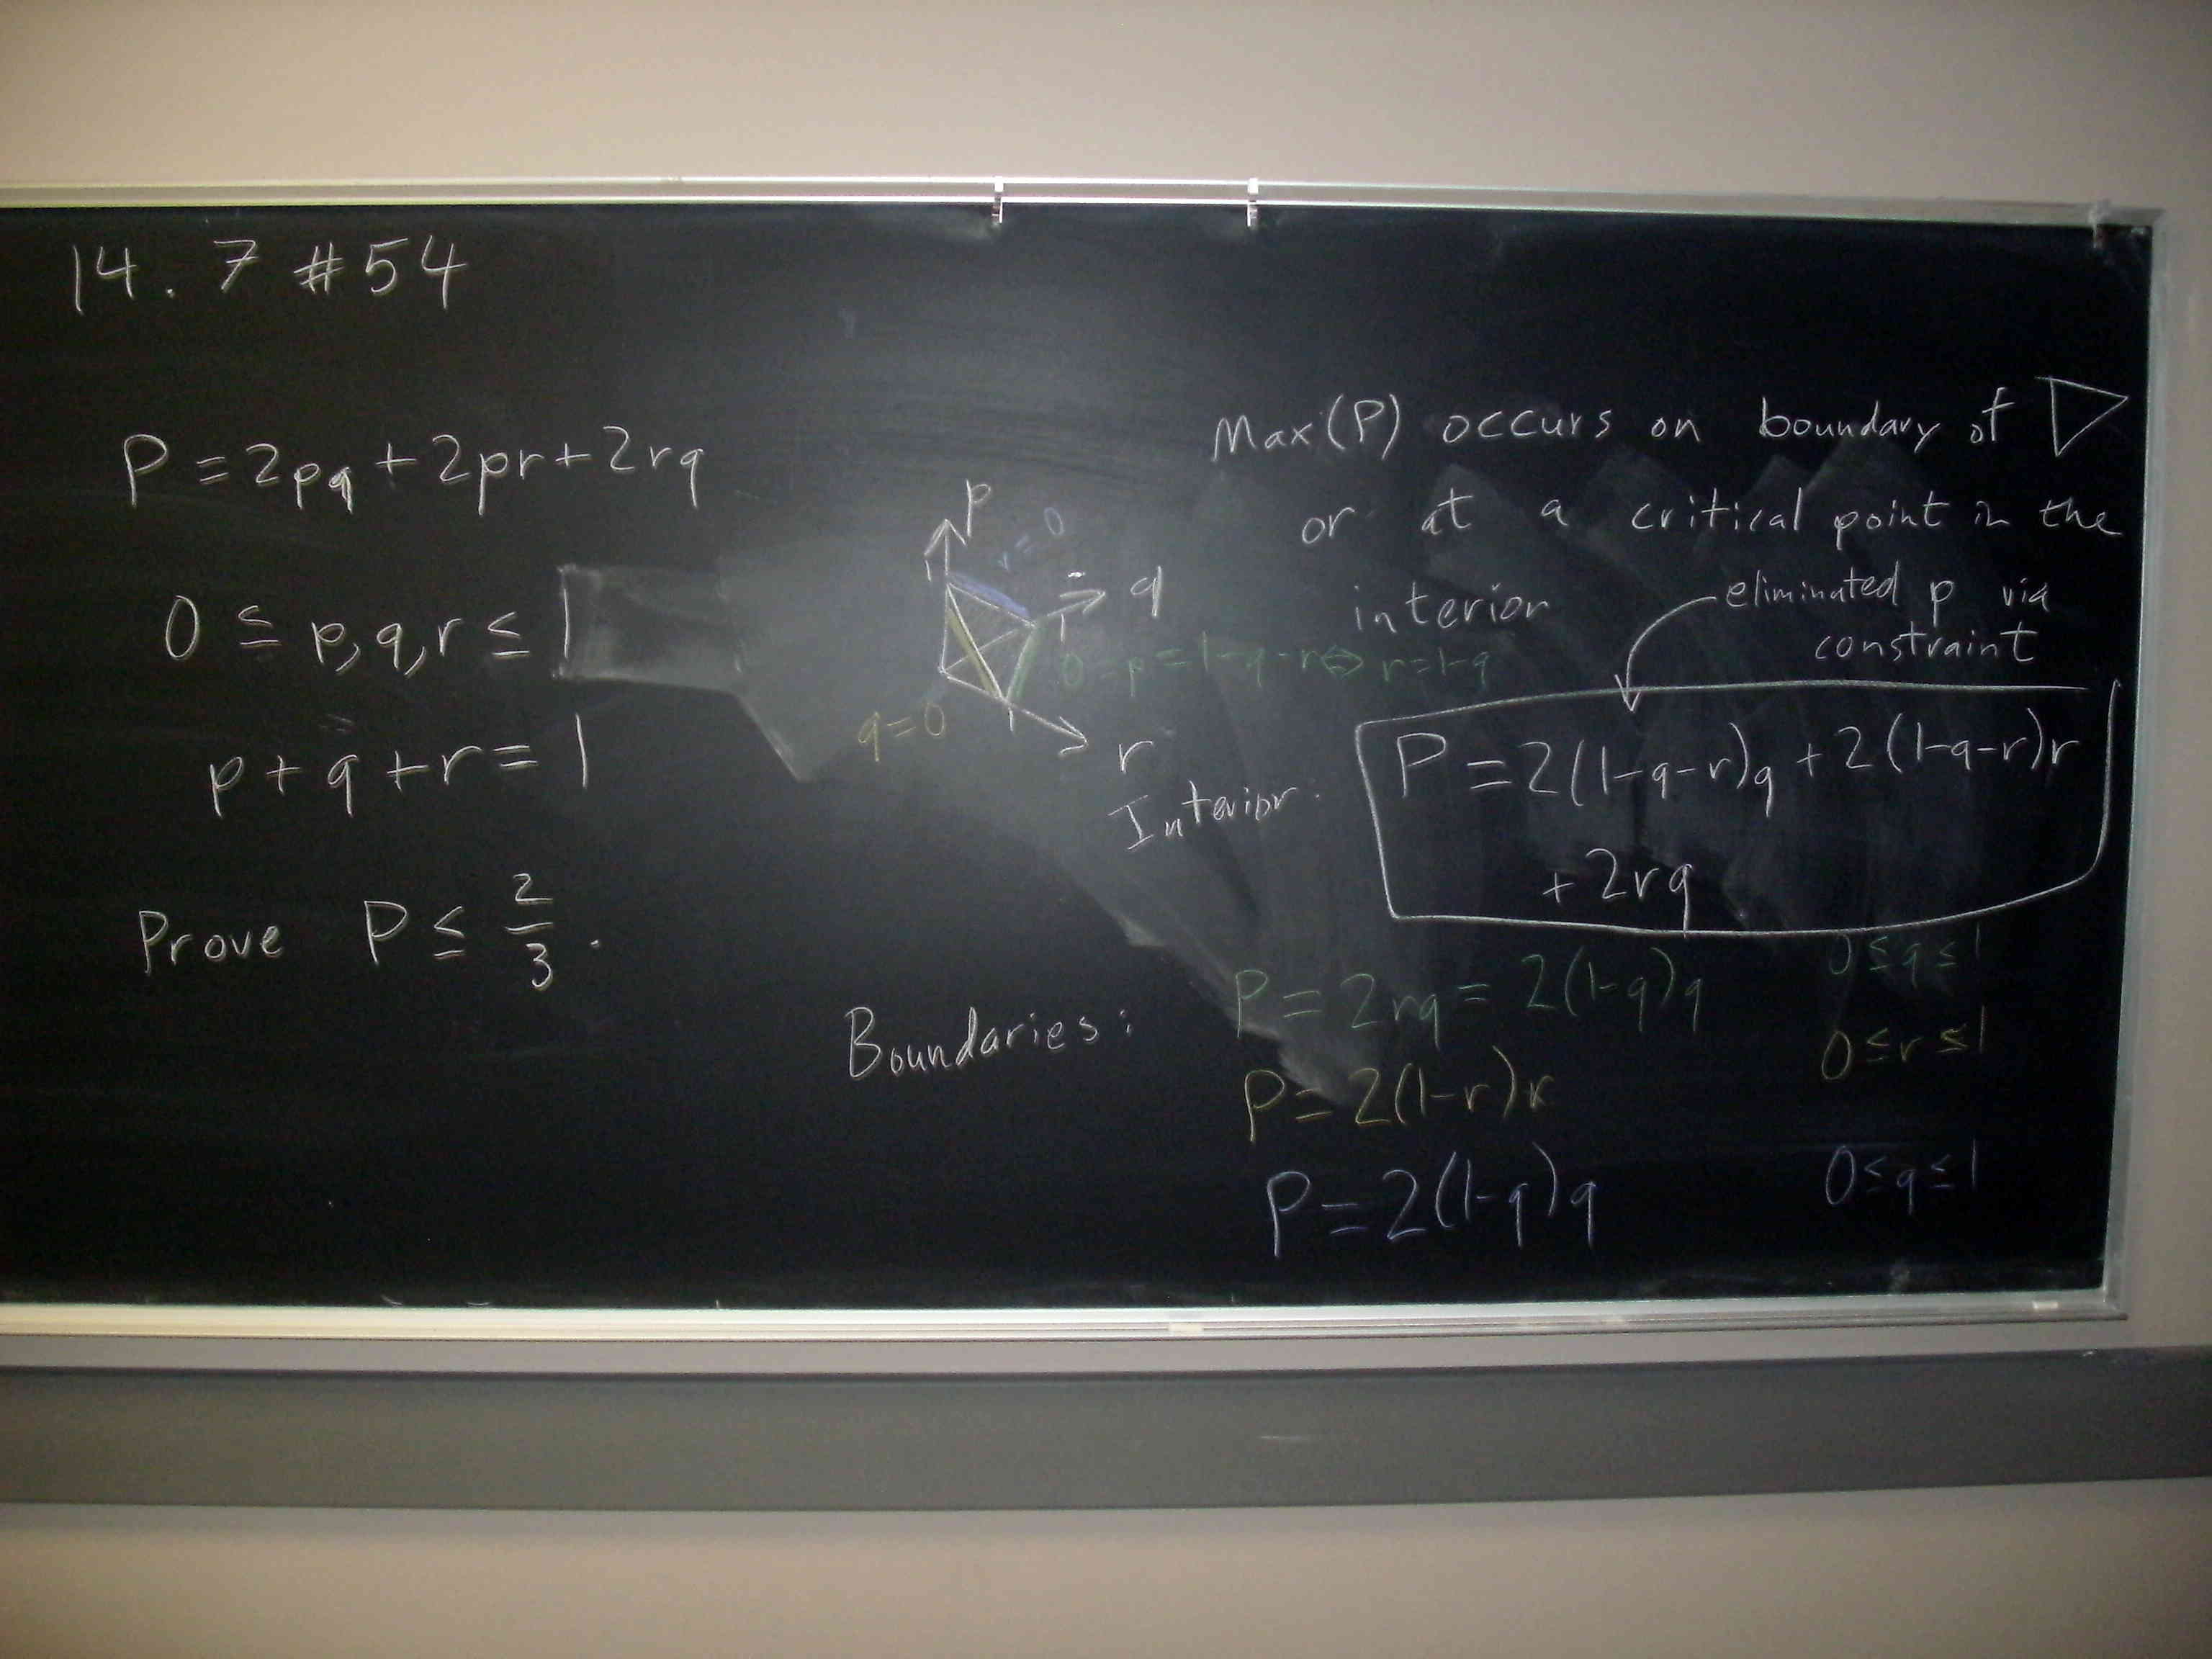 14.7 #54
P = 2pq + 2pr + 2rq
0 ≤ p,q,r ≤ 1
p + q + r = 1
Prove P ≤ 2/3.
p
r = 0
q
0 = p = 1-q-r ⇔ r = 1-q
q = 0
r
Max(P) occurs on boundary of ▷
or at a critical point in the
interior
eliminated p via
constraint
Interior:
P = 2(1-q-r)q + 2(1-q-r)r
+ 2rq
Boundaries:
P = 2rq = 2(1-q)q 0 ≤ q ≤ 1
P = 2(1-r)r 0 ≤ r ≤ 1
P = 2(1-q)q 0 ≤ q ≤ 1